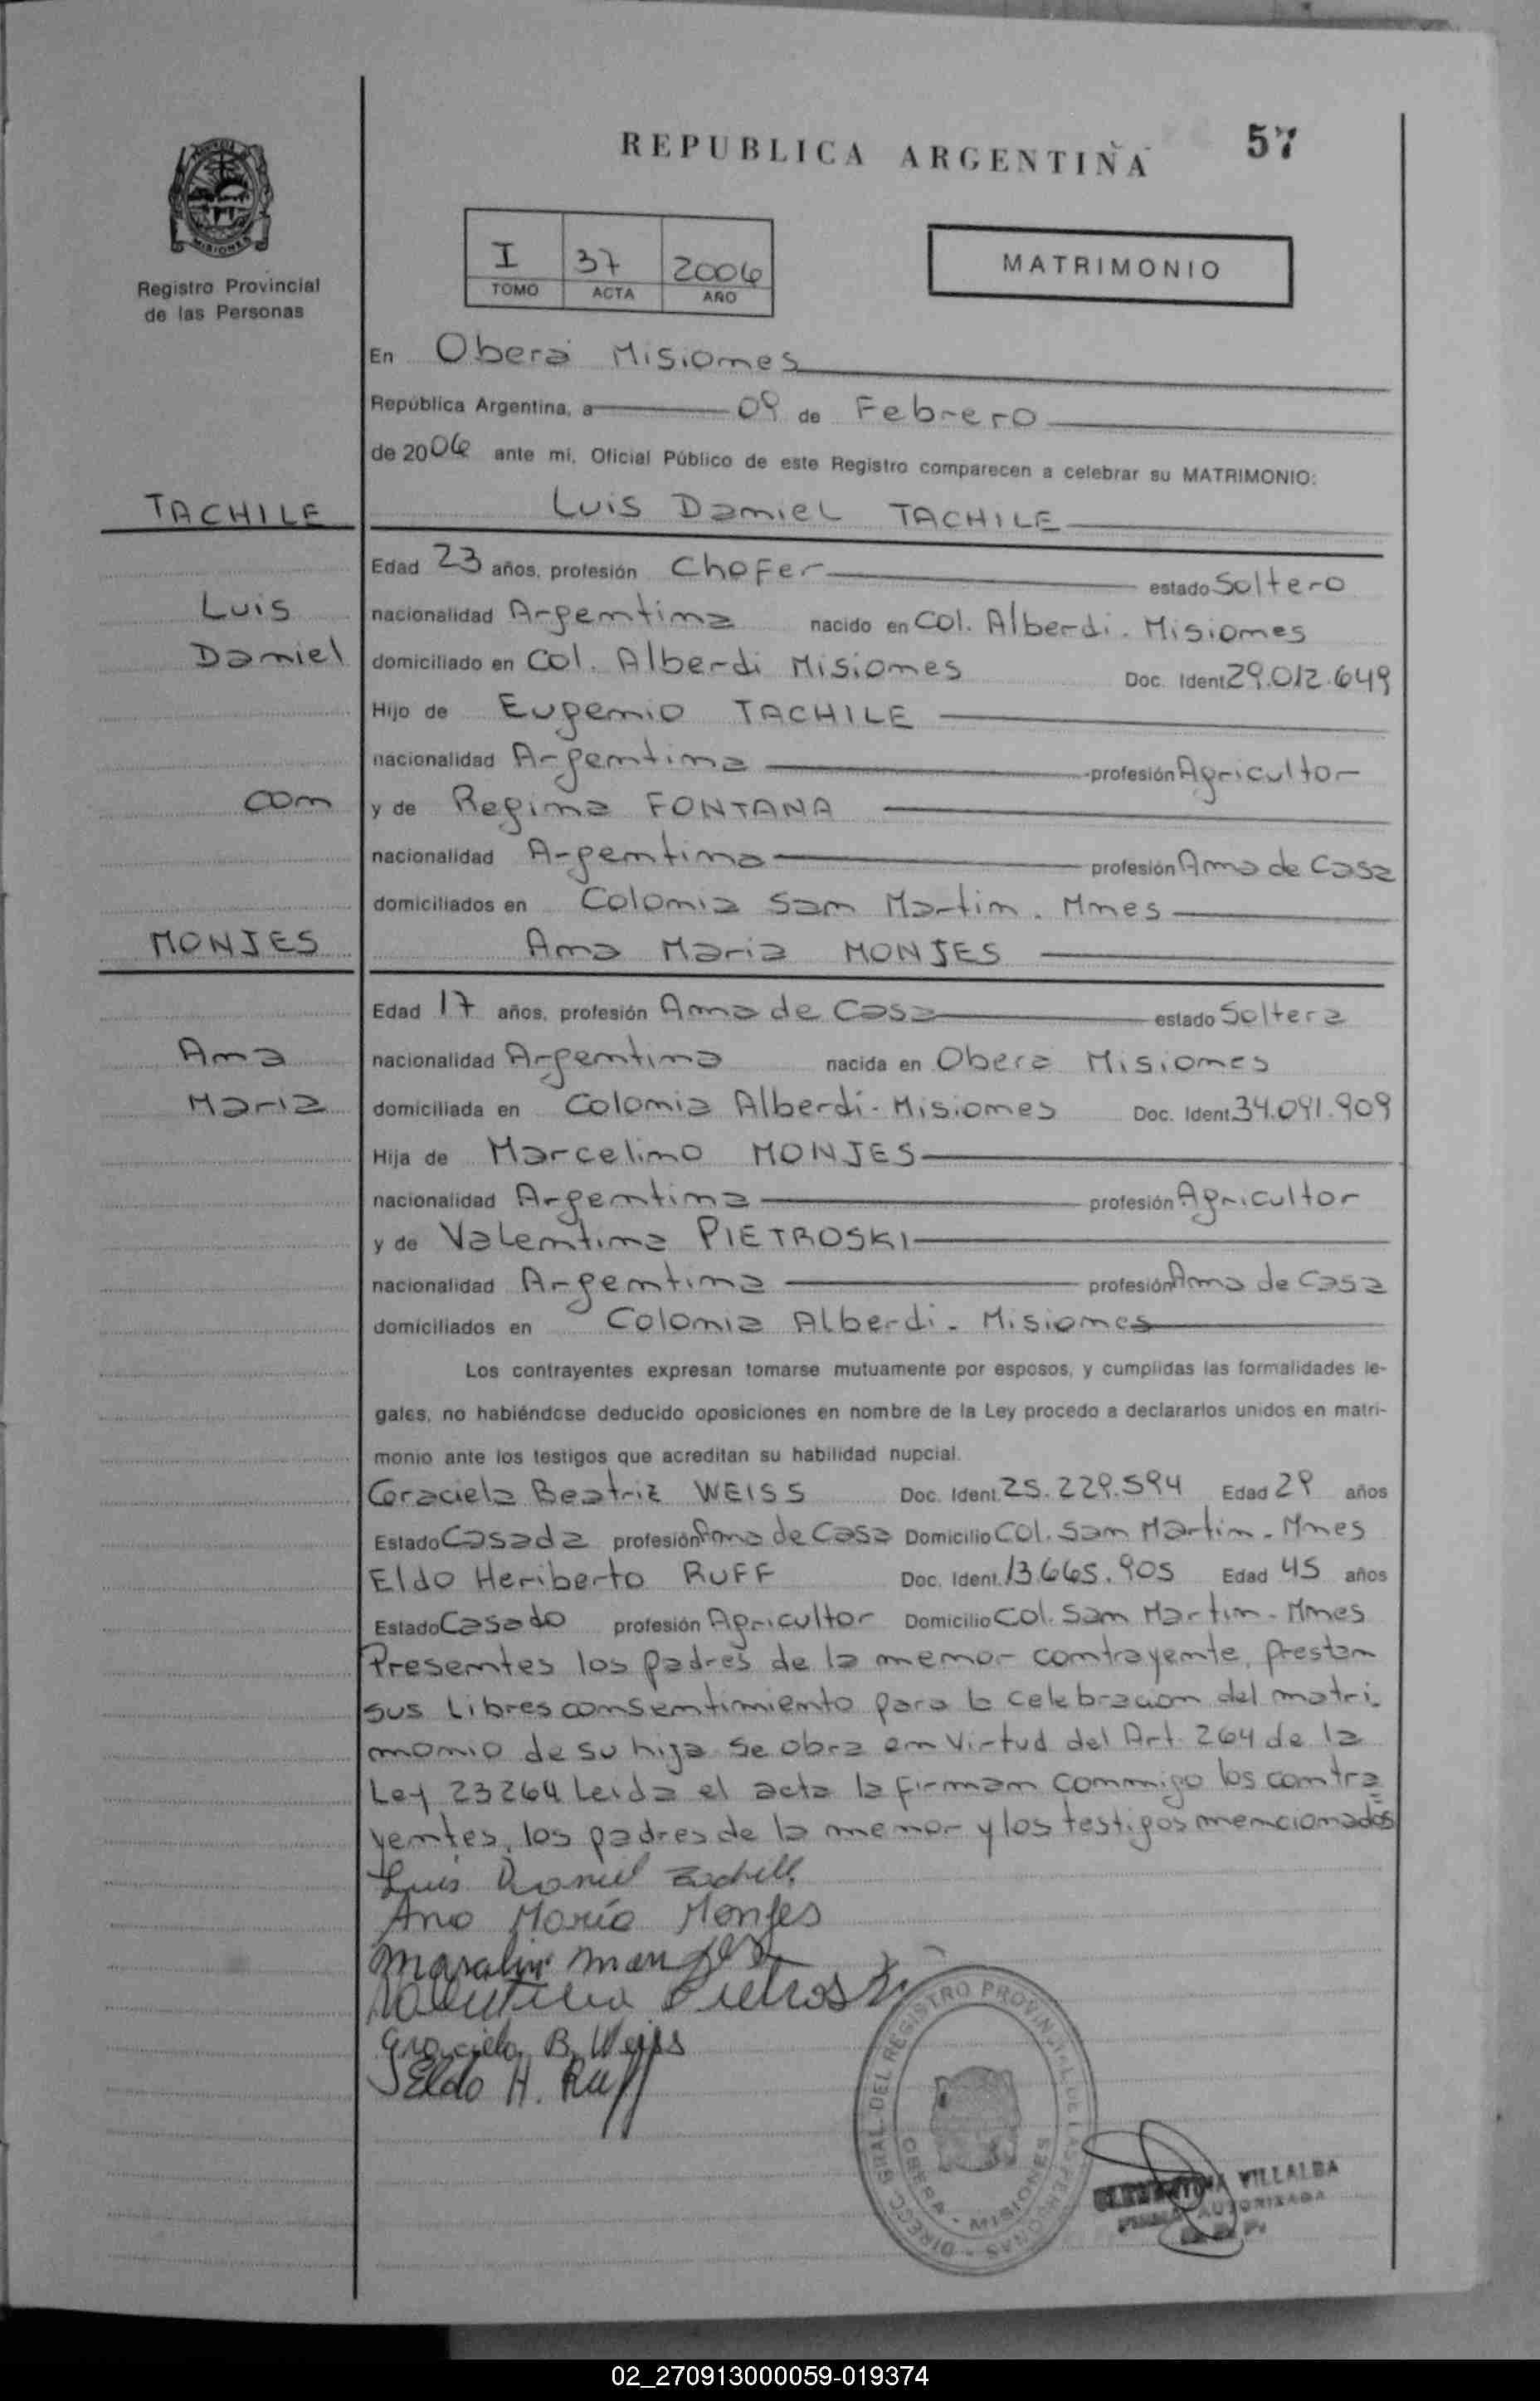 REPUBLICA ARGENTINA
57
MISIONES
Registro Provincial
de las Personas
I 37 2006
TOMO ACTA AÑO
MATRIMONIO
En Oberá Misiones
República Argentina, a 09 de Febrero
de 2006 ante mi, Oficial Público de este Registro comparecen a celebrar su MATRIMONIO:
TACHILE
Luis Daniel TACHILE
Edad 23 años, profesión Chofer estado Soltero
Luis
nacionalidad Argentina nacido en Col. Alberdi. Misiones
Daniel
domiciliado en Col. Alberdi Misiones Doc. Ident. 29.012.649
Hijo de Eugenio TACHILE
nacionalidad Argentina profesión Agricultor
con
y de Regina FONTANA
nacionalidad Argentina profesión Ama de Casa
domiciliados en Colonia San Martin. Mnes
MONJES
Ana Maria MONJES
Edad 17 años, profesión Ama de Casa estado Soltera
Ana
nacionalidad Argentina nacida en Oberá Misiones
Maria
domiciliada en Colonia Alberdi- Misiones Doc. Ident. 34.091.909
Hija de Marcelino MONJES
nacionalidad Argentina profesión Agricultor
y de Valentina PIETROSKI
nacionalidad Argentina profesión Ama de Casa
domiciliados en Colonia Alberdi - Misiones
Los contrayentes expresan tomarse mutuamente por esposos, y cumplidas las formalidades le-
gales, no habiéndose deducido oposiciones en nombre de la Ley procedo a declararlos unidos en matri-
monio ante los testigos que acreditan su habilidad nupcial.
Graciela Beatriz WEISS Doc. Ident. 25.229.594 Edad 29 años
Estado Casada profesión Ama de Casa Domicilio Col. San Martin - Mnes
Eldo Heriberto RUFF Doc. Ident. 13.665.905 Edad 45 años
Estado Casado profesión Agricultor Domicilio Col. San Martin - Mnes
Presentes los padres de la menor contrayente, prestan
sus Libres consentimiento para la celebracion del matri-
monio de su hija se obra en virtud del Art. 264 de la
Ley 23264 Leida el acta la firman conmigo los contra=
yentes, los padres de la menor y los testigos mencionados
Luis Daniel Tachile
Ana María Monjes
Valentina Pietroski
Graciela B. Weiss
Eldo H. Ruff
DIRECC. GRAL. DEL REGISTRO PROVINCIAL DE LAS PERSONAS
OBERA - MISIONES
VILLALBA
AUTORIZADA
02_270913000059-019374